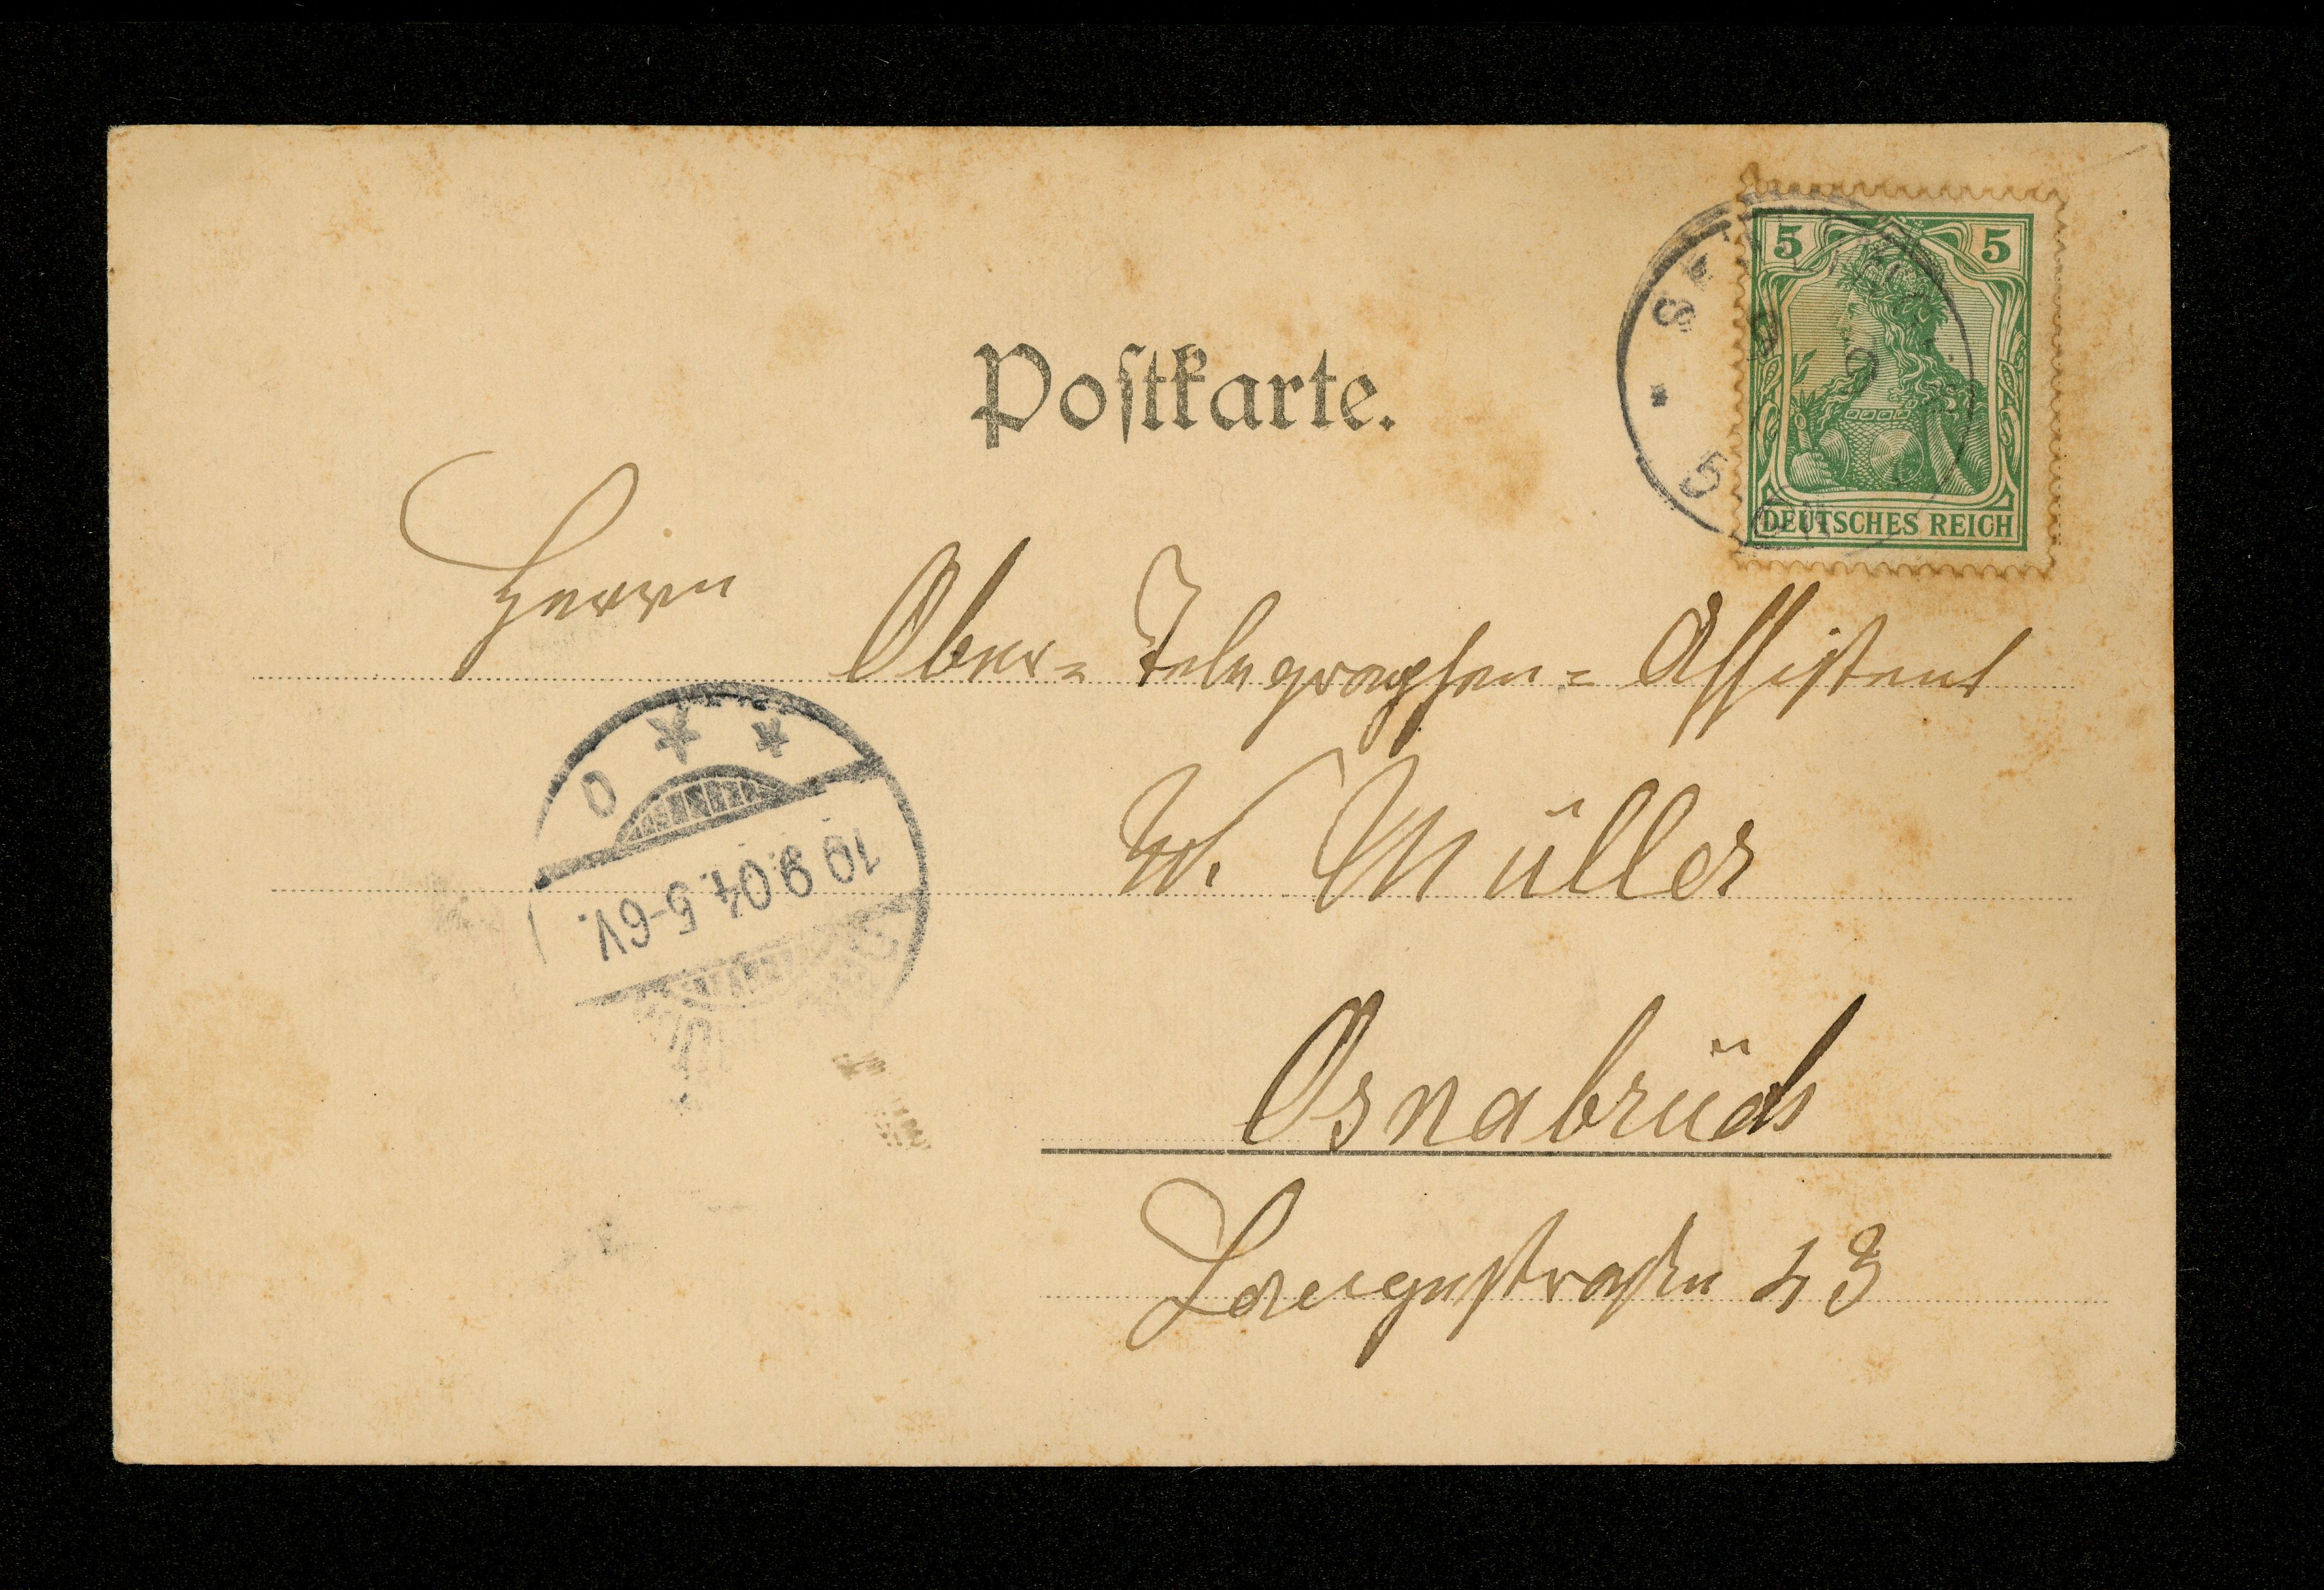 5 5
DEUTSCHES REICH
Postkarte.
Herrn
Ober-Telegraphen-Assistent
W. Müller
10.9.04.5-6V.
Osnabrück